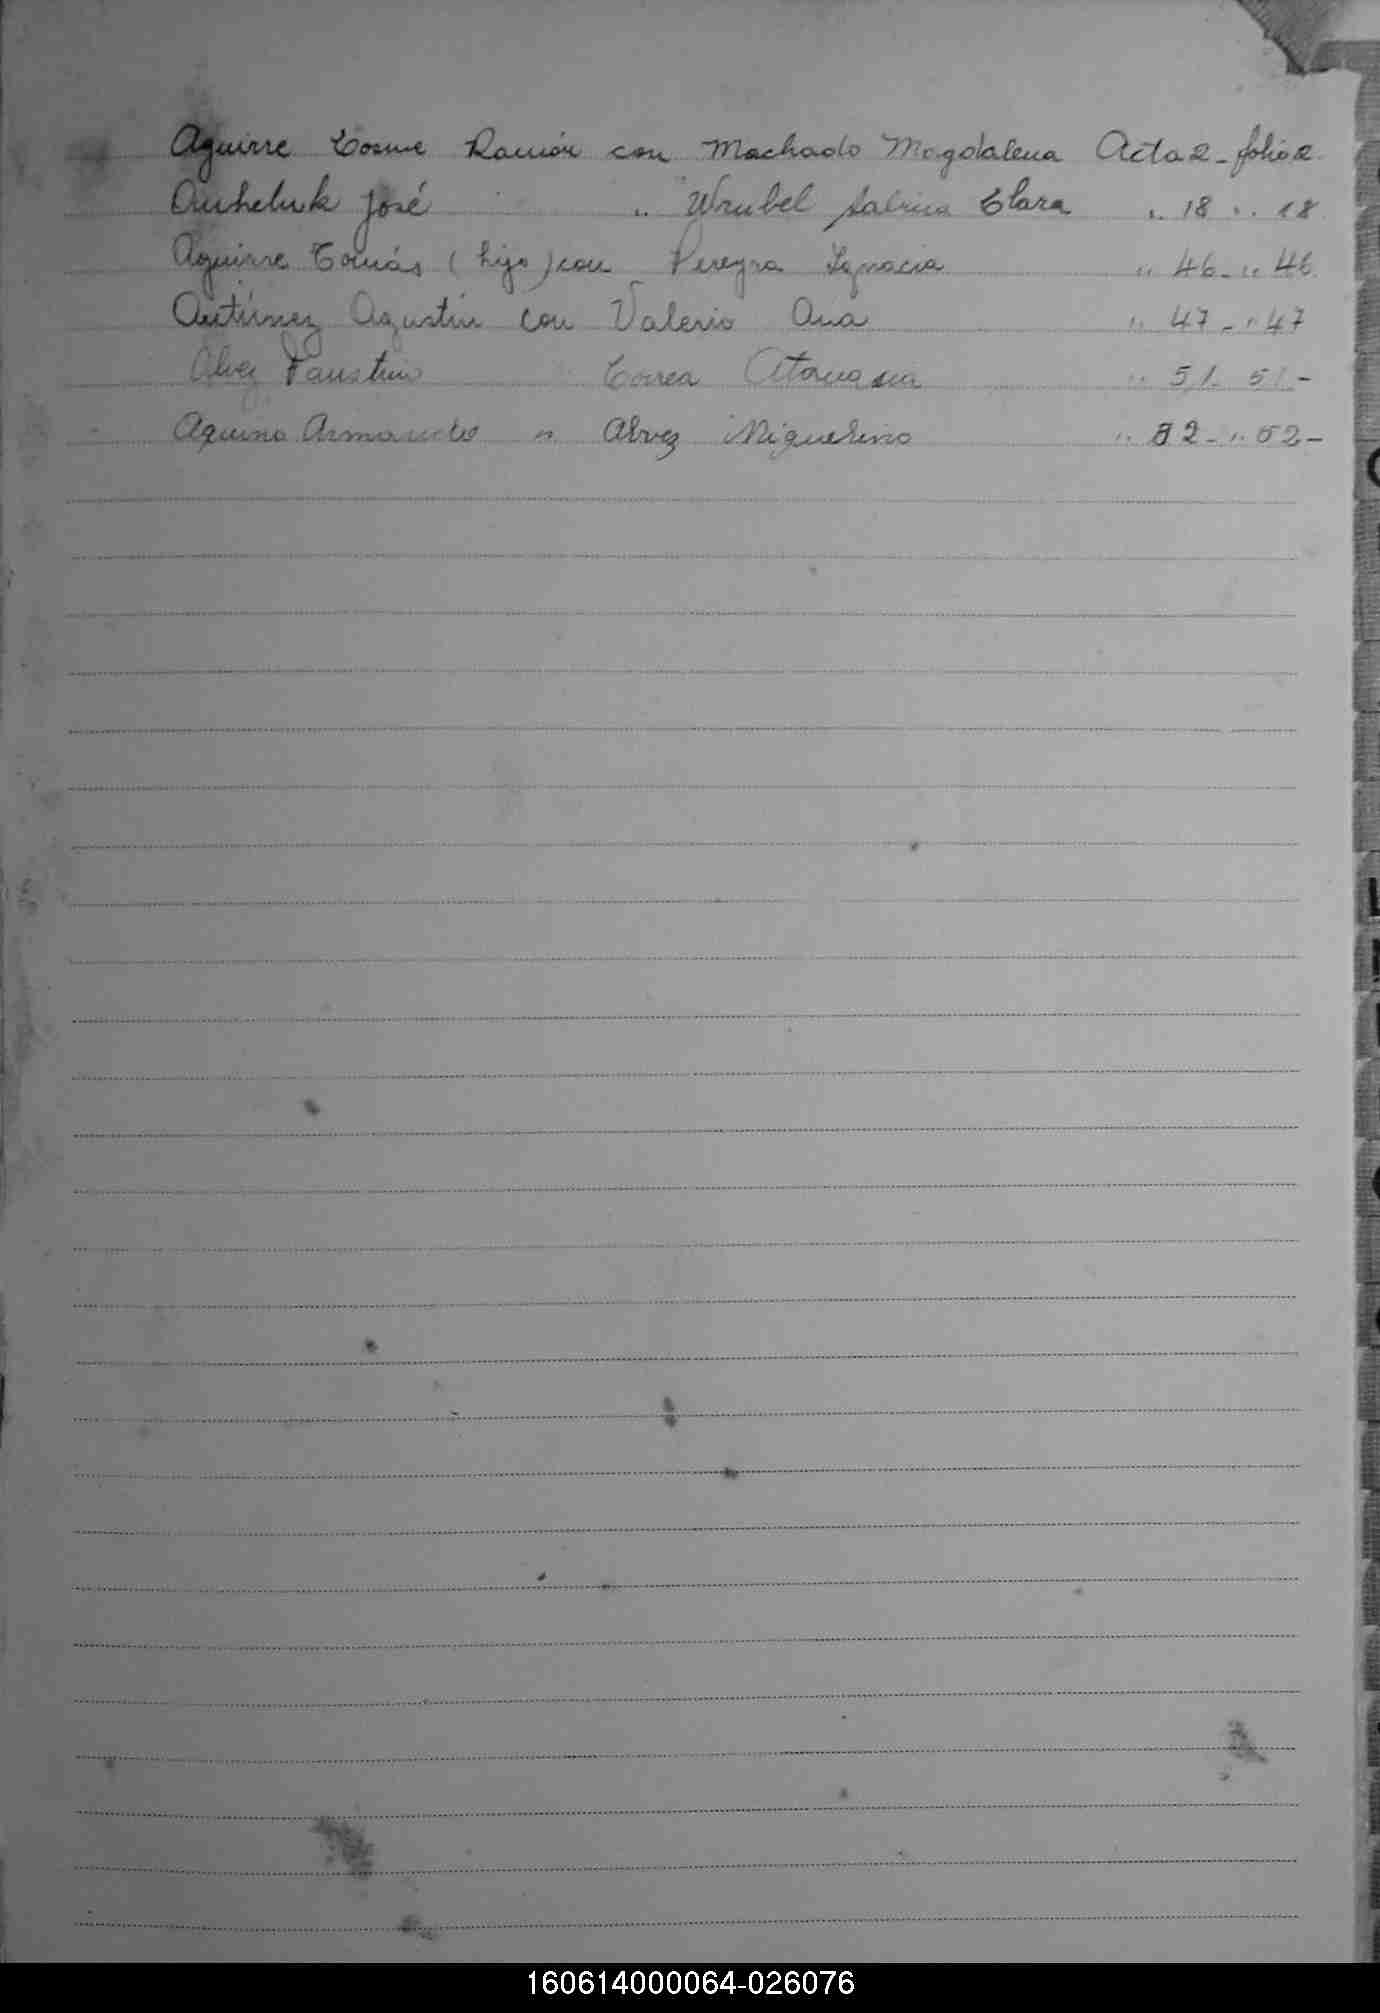 Aguirre Cosme Ramón con Machado Magdalena Acta 2 - folio 2
José " Wrubel Sabina Clara " 18 " 18
Aguirre Tomás (hijo) con Pereyra Ignacia " 46 - " 46
Antúnez Agustín con Valerio Ana " 47 - " 47
Alvez Faustino Correa Atanasia " 51 - 51 -
Aquino Armando " Alvez Miguelina " 52 - " 52 -
160614000064-026076